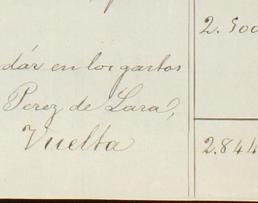 2.500
dár en los gastos
Perez de Lara,
Vuelta
2.844